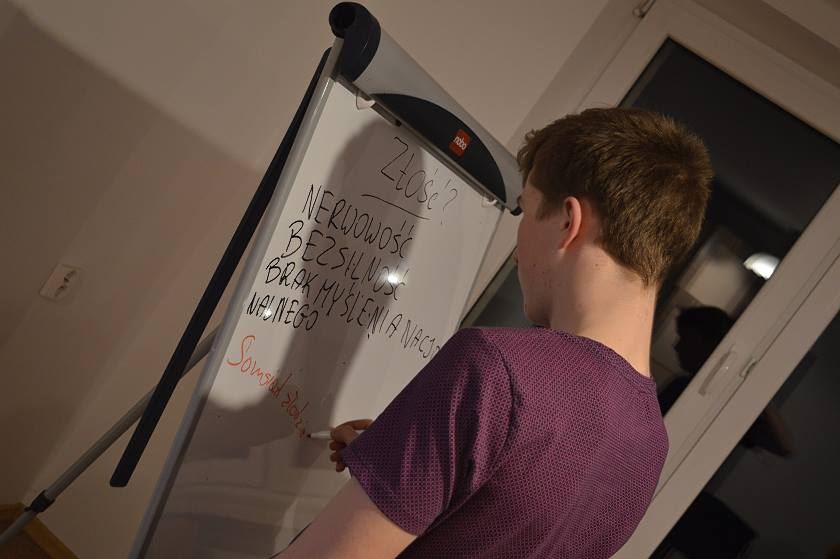 nobo
ZŁOŚĆ?
NERWOWOŚĆ
BEZSILNOŚĆ
BRAK MYŚLENIA NACJO
NALNEGO
Somsiad